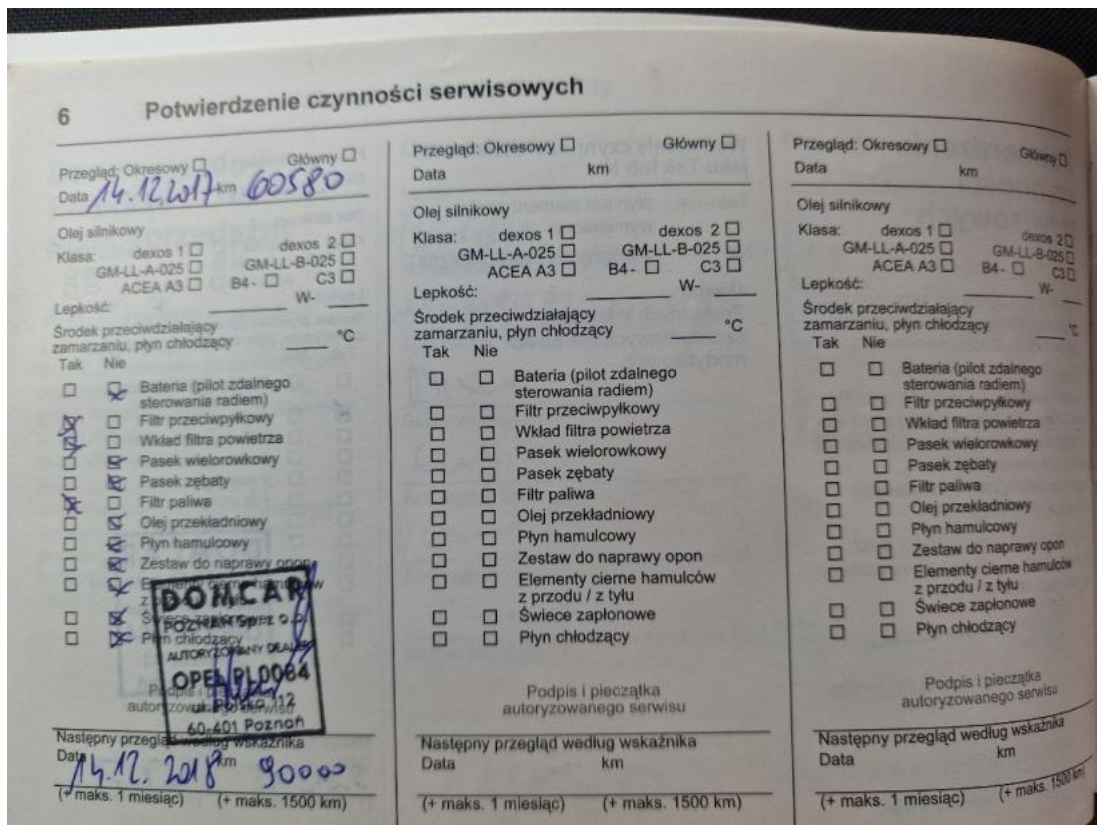 6 Potwierdzenie czynności serwisowych
Przegląd: Okresowy ☐ Główny ☐
Data 14.12.2017 km 60580
Olej silnikowy
Klasa: dexos 1 ☐ dexos 2 ☐
GM-LL-A-025 ☐ GM-LL-B-025 ☐
ACEA A3 ☐ B4- ☐ C3 ☐
Lepkość: W-
Środek przeciwdziałający
zamarzaniu, płyn chłodzący °C
Tak Nie
☐ ☒ Bateria (pilot zdalnego
sterowania radiem)
☒ ☐ Filtr przeciwpyłkowy
☒ ☐ Wkład filtra powietrza
☐ ☒ Pasek wielorowkowy
☐ ☒ Pasek zębaty
☒ ☐ Filtr paliwa
☐ ☒ Olej przekładniowy
☐ ☒ Płyn hamulcowy
☐ ☒ Zestaw do naprawy opon
☐ ☒ Elementy cierne hamulców
☐ ☒ Świece zapłonowe
☐ ☒ Płyn chłodzący
DOMCAR
POZNAŃ Sp. z o.o.
AUTORYZOWANY DEALER
OPEL PL0084
112
60-401 Poznań
Podpis i
autoryzowanego serwisu
Następny przegląd według wskaźnika
Data 14.12.2018 km 90000
(+ maks. 1 miesiąc) (+ maks. 1500 km)
Przegląd: Okresowy ☐ Główny ☐
Data km
Olej silnikowy
Klasa: dexos 1 ☐ dexos 2 ☐
GM-LL-A-025 ☐ GM-LL-B-025 ☐
ACEA A3 ☐ B4- ☐ C3 ☐
Lepkość: W-
Środek przeciwdziałający
zamarzaniu, płyn chłodzący °C
Tak Nie
☐ ☐ Bateria (pilot zdalnego
sterowania radiem)
☐ ☐ Filtr przeciwpyłkowy
☐ ☐ Wkład filtra powietrza
☐ ☐ Pasek wielorowkowy
☐ ☐ Pasek zębaty
☐ ☐ Filtr paliwa
☐ ☐ Olej przekładniowy
☐ ☐ Płyn hamulcowy
☐ ☐ Zestaw do naprawy opon
☐ ☐ Elementy cierne hamulców
z przodu / z tyłu
☐ ☐ Świece zapłonowe
☐ ☐ Płyn chłodzący
Podpis i pieczątka
autoryzowanego serwisu
Następny przegląd według wskaźnika
Data km
(+ maks. 1 miesiąc) (+ maks. 1500 km)
Przegląd: Okresowy ☐ Główny ☐
Data km
Olej silnikowy
Klasa: dexos 1 ☐ dexos 2 ☐
GM-LL-A-025 ☐ GM-LL-B-025 ☐
ACEA A3 ☐ B4- ☐ C3 ☐
Lepkość: W-
Środek przeciwdziałający
zamarzaniu, płyn chłodzący °C
Tak Nie
☐ ☐ Bateria (pilot zdalnego
sterowania radiem)
☐ ☐ Filtr przeciwpyłkowy
☐ ☐ Wkład filtra powietrza
☐ ☐ Pasek wielorowkowy
☐ ☐ Pasek zębaty
☐ ☐ Filtr paliwa
☐ ☐ Olej przekładniowy
☐ ☐ Płyn hamulcowy
☐ ☐ Zestaw do naprawy opon
☐ ☐ Elementy cierne hamulców
z przodu / z tyłu
☐ ☐ Świece zapłonowe
☐ ☐ Płyn chłodzący
Podpis i pieczątka
autoryzowanego serwisu
Następny przegląd według wskaźnika
Data km
(+ maks. 1 miesiąc) (+ maks. 1500 km)